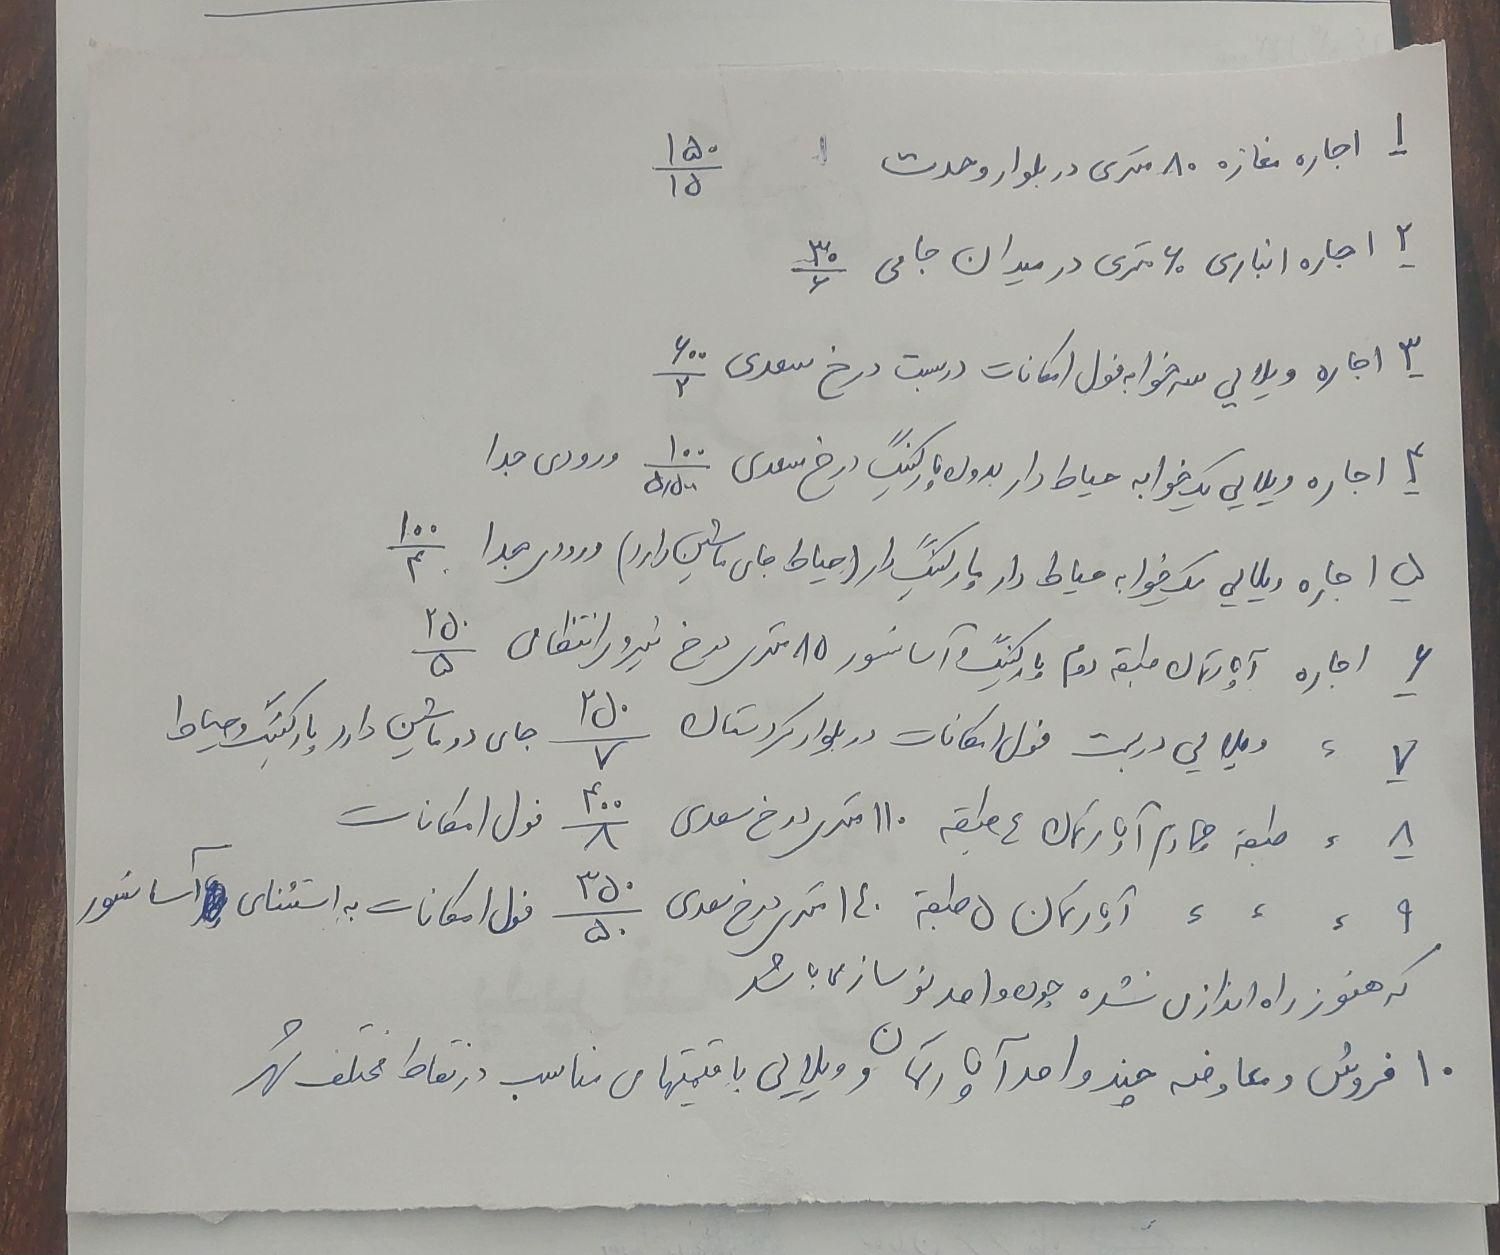 ۱ اجاره مغازه ۸۰ متری در بلوار وحدت ۱۵۰/۱۵
۲ اجاره انباری ۶۰ متری در میدان جامی ۳۰/۶
۳ اجاره ویلایی سه خوابه فول امکانات دربست در خ سعدی ۶۰۰/۲
۴ اجاره ویلایی یک خوابه حیاط دار بدون پارکینگ در خ سعدی ۱۰۰/۵٫۵۰۰ ورودی جدا
۵ اجاره ویلایی یک خوابه حیاط دار پارکینگ دار (حیاط جای ماشین دارد) ورودی جدا ۱۰۰/۴
۶ اجاره آپارتمان طبقه دوم پارکینگ و آسانسور ۸۵ متری در خ نیروی انتظامی ۲۵۰/۵
۷ ء ویلایی دربست فول امکانات در بلوار کردستان ۲۵۰/۷ جای دو ماشین دارد پارکینگ و حیاط
۸ ء طبقه چهارم آپارتمان ٤ طبقه ۱۱۰ متری در خ سعدی ۴۰۰/۸ فول امکانات
۹ ء ء ء آپارتمان ۵ طبقه ۱٤۰ متری در خ سعدی ۳۵۰/۵۰ فول امکانات به استثنای آسانسور
که هنوز راه اندازی نشده چون واحد نوساز می باشد
۱۰ فروش و معاوضه چند واحد آپارتمان و ویلایی با قیمتهای مناسب در نقاط مختلف شهر